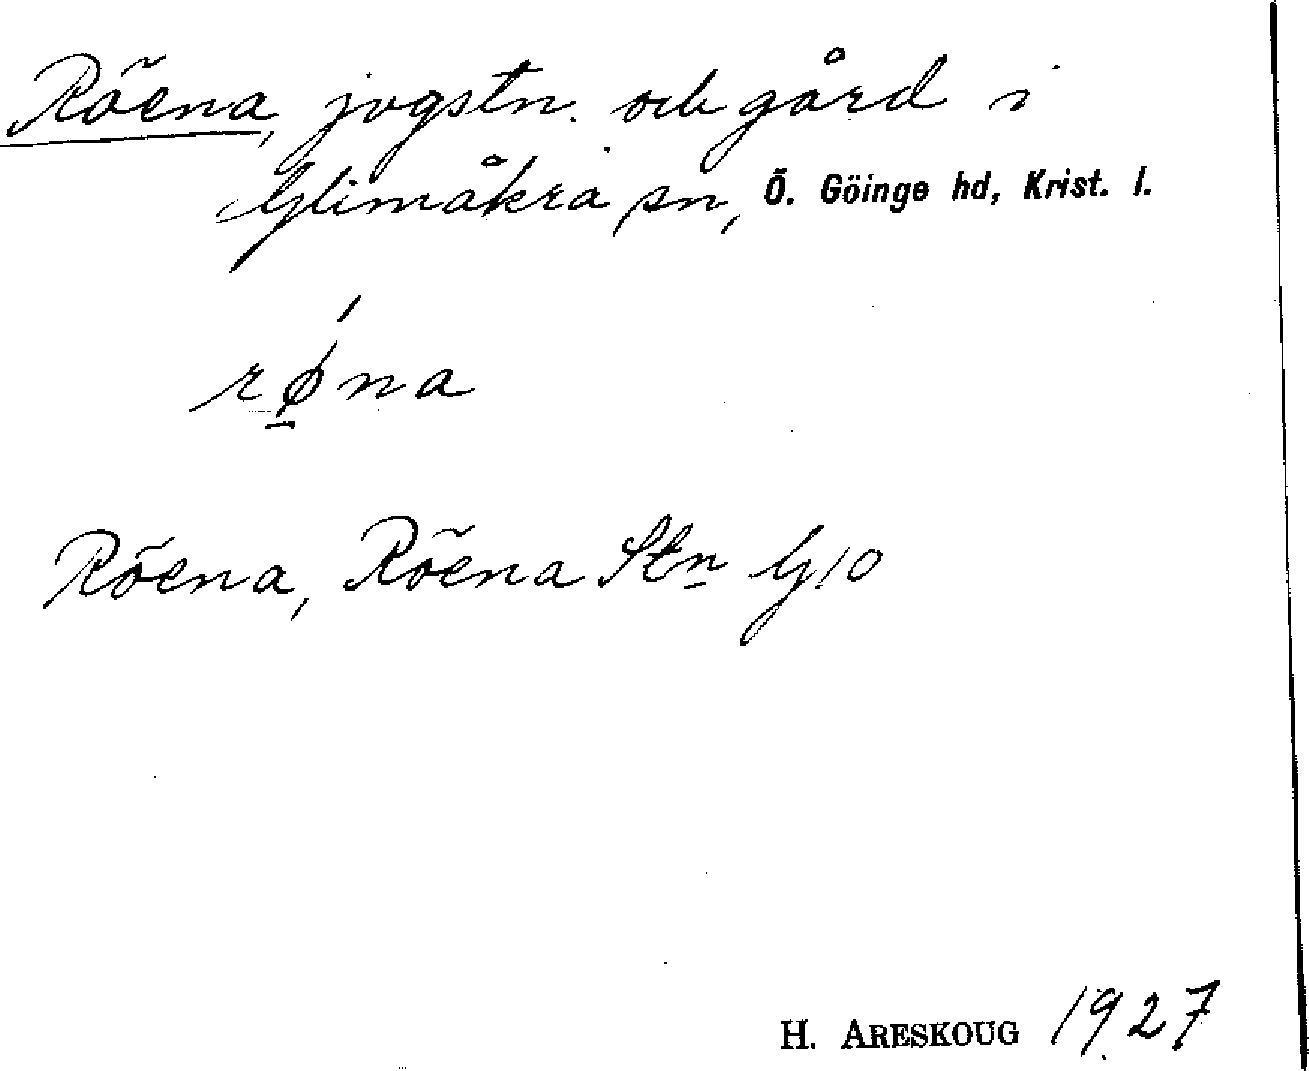 Röena, jvgstn. och gård i
Glimåkra sn, Ö. Göinge hd, Krist. l.
rǿ̱na
Röena, Röena Stn G10
H. ARESKOUG 1927